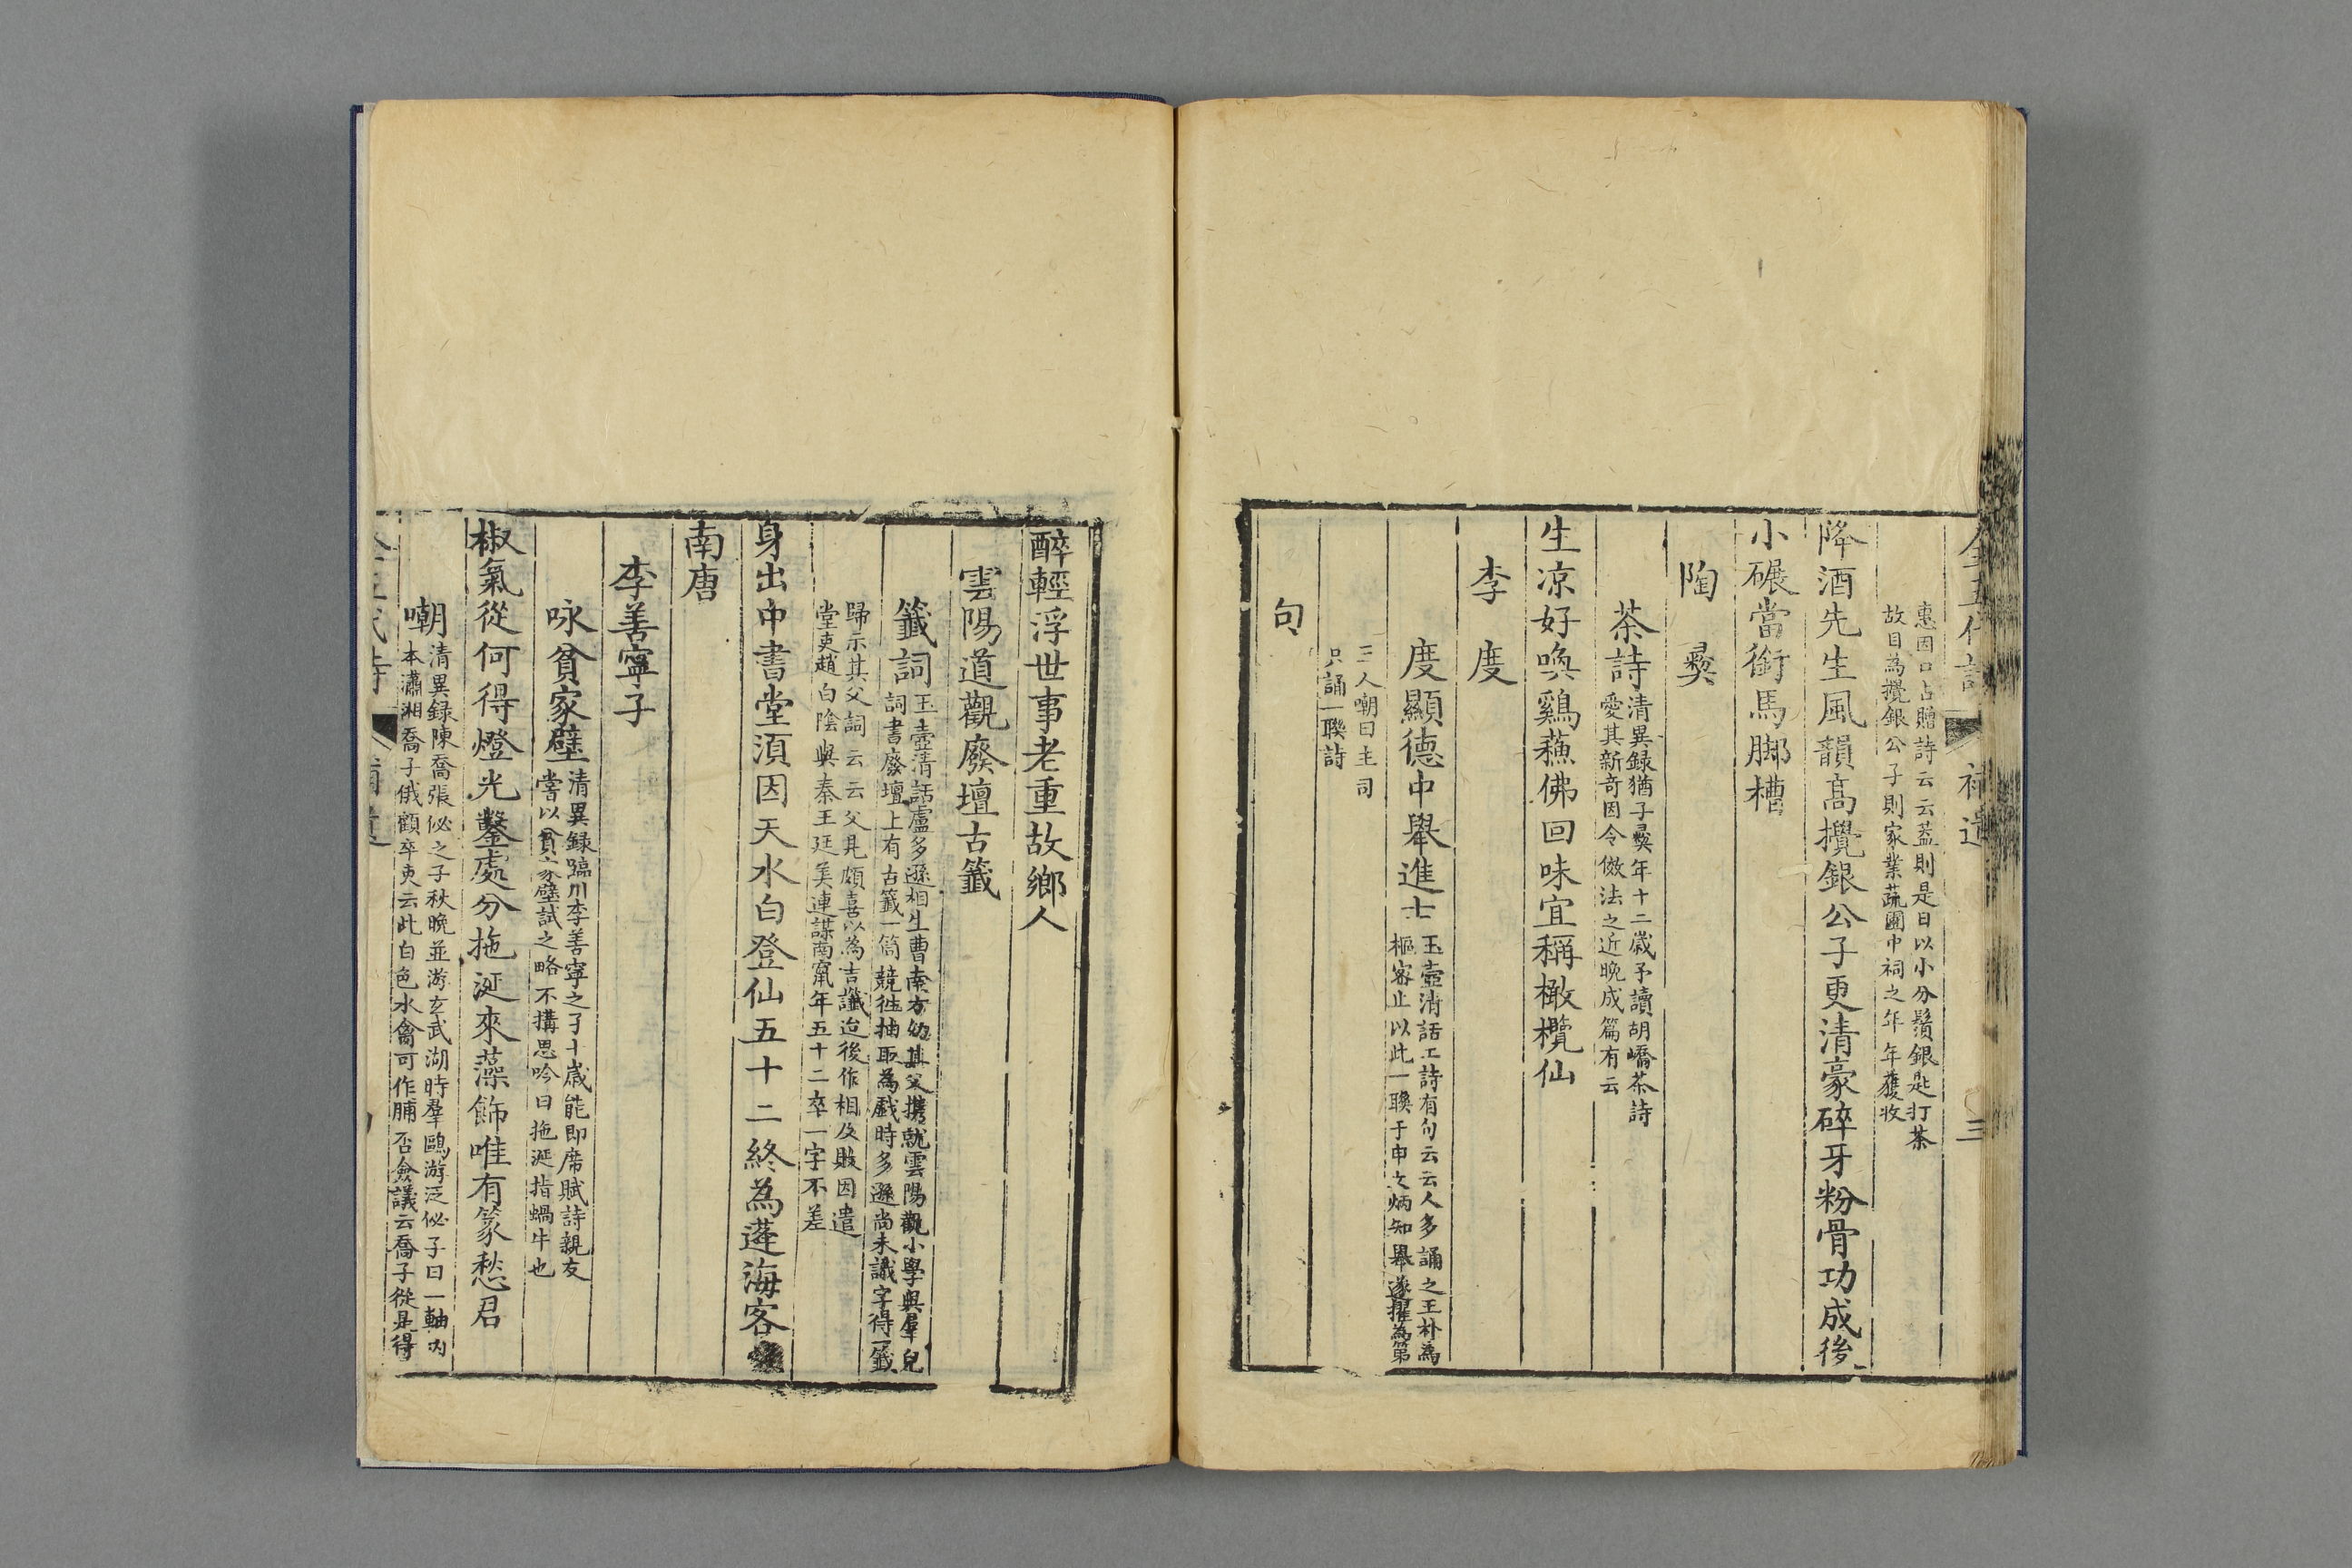 全五代詩 補遺 三
惠因口占贈詩云云葢則是日以小分鬚銀匙打茶
故目為攪銀公子則家業蔬圃中祠之年年獲收
降酒先生風韻高攪銀公子更清豪碎牙粉骨功成後
小碾當銜馬脚槽
陶彛
茶詩清異録猶子彛年十二歲予讀胡嶠茶詩
愛其新竒因令倣法之近晚成篇有云
生凉好喚鷄蘓佛回味宜稱橄欖仙
李度
度顯德中舉進士玉壺清話工詩有句云云人多誦之王朴為
樞密止以此一聨于申文炳知舉遂擢為第
三人嘲曰主司
只誦一聨詩
句
醉輕浮世事老重故鄉人
雲陽道觀廢壇古籤
籤詞玉壺清話盧多遜相生曹南方幼其父攜就雲陽觀小學與羣兒
詞書廢壇上有古籤一筒競徃抽取為戲時多遜尚未識字得一籤
歸示其父詞云云父見頗喜以為吉讖迨後作相及敗因遣
堂吏趙白陰與秦王廷美連謀南竄年五十二卒一字不差
身出中書堂湏因天水白登仙五十二終為蓬海客
南唐
李善寧子
咏貧家壁清異録臨川李善寧之子十歲能即席賦詩親友
嘗以貧家壁試之略不搆思吟曰拖涎指蝸牛也
椒氣從何得燈光鑿處分拖涎來藻飾唯有篆愁君
嘲清異録陳喬張佖之子秋晚並游玄武湖時羣鷗游泛佖子曰一軸内
本瀟湘喬子俄顧卒吏云此白色水禽可作脯否僉議云喬子從是得